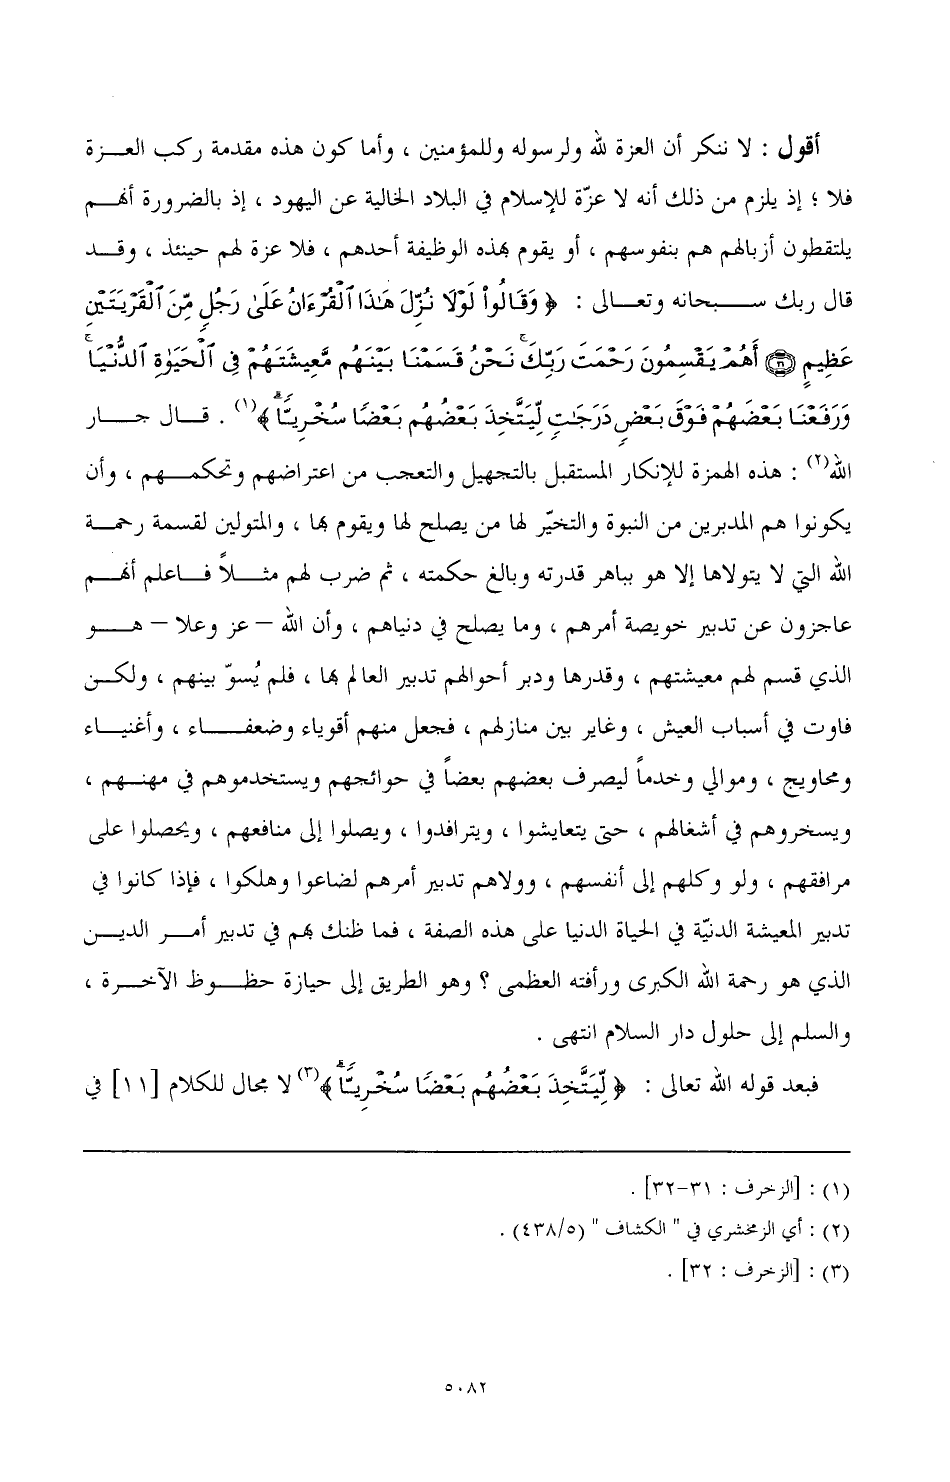 أقول : لا ننكر أن العزة لله ولرسوله وللمؤمنين ، وأما كون هذه مقدمة ركب العزة
فلا ؛ إذ يلزم من ذلك أنه لا عزّة للإسلام في البلاد الخالية عن اليهود ، إذ بالضرورة أنهم
يلتقطون أزبالهم هم بنفوسهم ، أو يقوم بهذه الوظيفة أحدهم ، فلا عزة لهم حينئذ ، وقد
قال ربك سبحانه وتعالى : ﴿ وَقَالُواْ لَوْلَا نُزِّلَ هَٰذَا ٱلْقُرْءَانُ عَلَىٰ رَجُلٍ مِّنَ ٱلْقَرْيَتَيْنِ
عَظِيمٍ ۝٣١ أَهُمْ يَقْسِمُونَ رَحْمَتَ رَبِّكَۚ نَحْنُ قَسَمْنَا بَيْنَهُم مَّعِيشَتَهُمْ فِى ٱلْحَيَوٰةِ ٱلدُّنْيَاۚ
وَرَفَعْنَا بَعْضَهُمْ فَوْقَ بَعْضٍ دَرَجَٰتٍ لِّيَتَّخِذَ بَعْضُهُم بَعْضًا سُخْرِيًّاۗ ﴾(١) . قال جار
الله(٢) : هذه الهمزة للإنكار المستقبل بالتجهيل والتعجب من اعتراضهم وتحكمهم ، وأن
يكونوا هم المدبرين من النبوة والتخيّر لها من يصلح لها ويقوم بها ، والمتولين لقسمة رحمة
الله التي لا يتولاها إلا هو بباهر قدرته وبالغ حكمته ، ثم ضرب لهم مثلاً فاعلم أنهم
عاجزون عن تدبير خويصة أمرهم ، وما يصلح في دنياهم ، وأن الله – عز وعلا – هو
الذي قسم لهم معيشتهم ، وقدرها ودبر أحوالهم تدبير العالم بها ، فلم يُسوّ بينهم ، ولكن
فاوت في أسباب العيش ، وغاير بين منازلهم ، فجعل منهم أقوياء وضعفاء ، وأغنياء
ومحاويج ، وموالي وخدماً ليصرف بعضهم بعضاً في حوائجهم ويستخدموهم في مهنهم ،
ويسخروهم في أشغالهم ، حتى يتعايشوا ، ويترافدوا ، ويصلوا إلى منافعهم ، ويحصلوا على
مرافقهم ، ولو وكلهم إلى أنفسهم ، وولاهم تدبير أمرهم لضاعوا وهلكوا ، فإذا كانوا في
تدبير المعيشة الدنيّة في الحياة الدنيا على هذه الصفة ، فما ظنك بهم في تدبير أمر الدين
الذي هو رحمة الله الكبرى ورأفته العظمى ؟ وهو الطريق إلى حيازة حظوظ الآخرة ،
والسلم إلى حلول دار السلام انتهى .
فبعد قوله الله تعالى : ﴿ لِّيَتَّخِذَ بَعْضُهُم بَعْضًا سُخْرِيًّاۗ ﴾(٣) لا مجال للكلام [١١] في
(١) : [الزخرف : ٣١-٣٢] .
(٢) : أي الزمخشري في " الكشاف " (٤٣٨/٥) .
(٣) : [الزخرف : ٣٢] .
٥٠٨٢